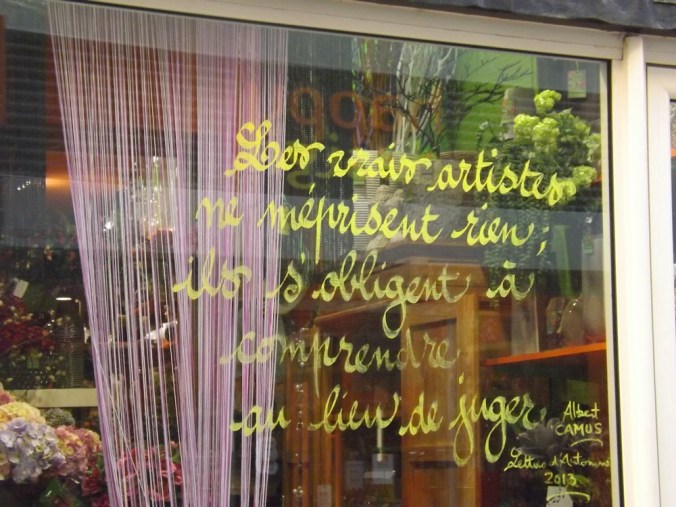 Les vrais artistes
ne méprisent rien;
ils s'obligent à
comprendre
au lieu de juger.
Albert
CAMUS
2013